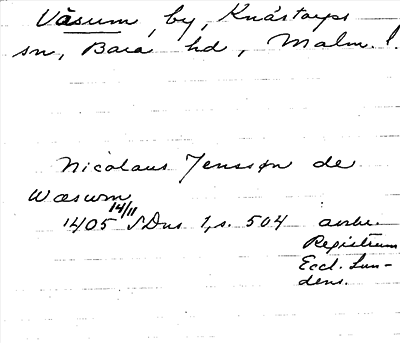 Våsum, by, Knästorps
sn, Bara hd, Malm. l.
Nicolaus Jenssøn de
Wæsum
14/11
1405 SDns 1, s. 504 avskr.
Registrum
Eccl. Lun-
dens.